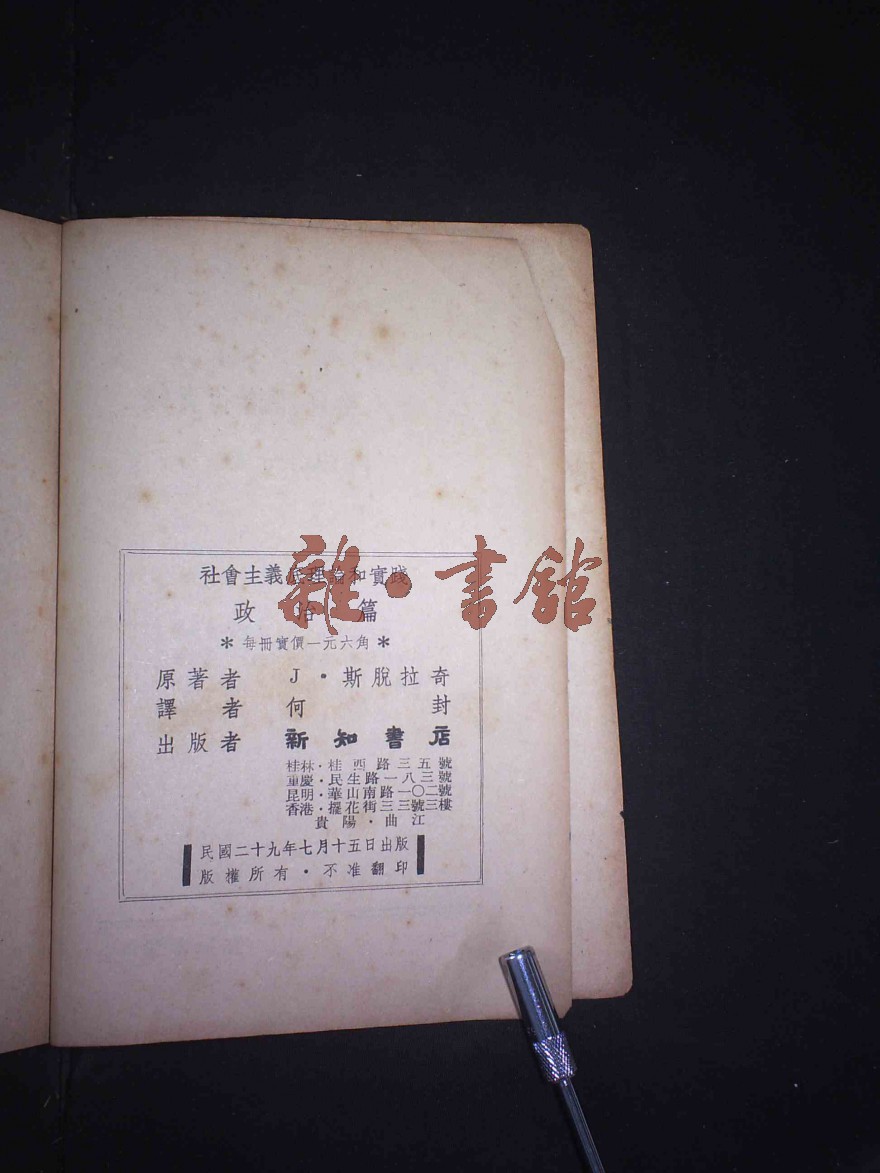 社會主義底理論和實踐
政治篇
＊每冊實價一元六角＊
原著者 J・斯脫拉奇
譯者 何封
出版者 新知書店
桂林・桂西路三五號
重慶・民生路一八三號
昆明・華山南路一〇二號
香港・擺花街三三號三樓
貴陽・曲江
民國二十九年七月十五日出版
版權所有・不准翻印
雜・書館